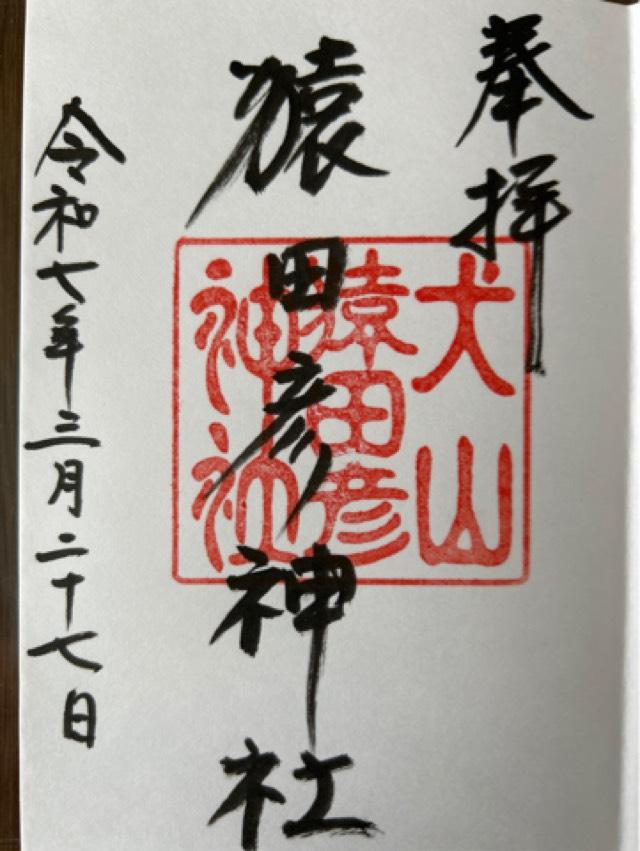 奉拝
犬山
猿田彦
神社
猿田彦神社
令和七年三月二十七日